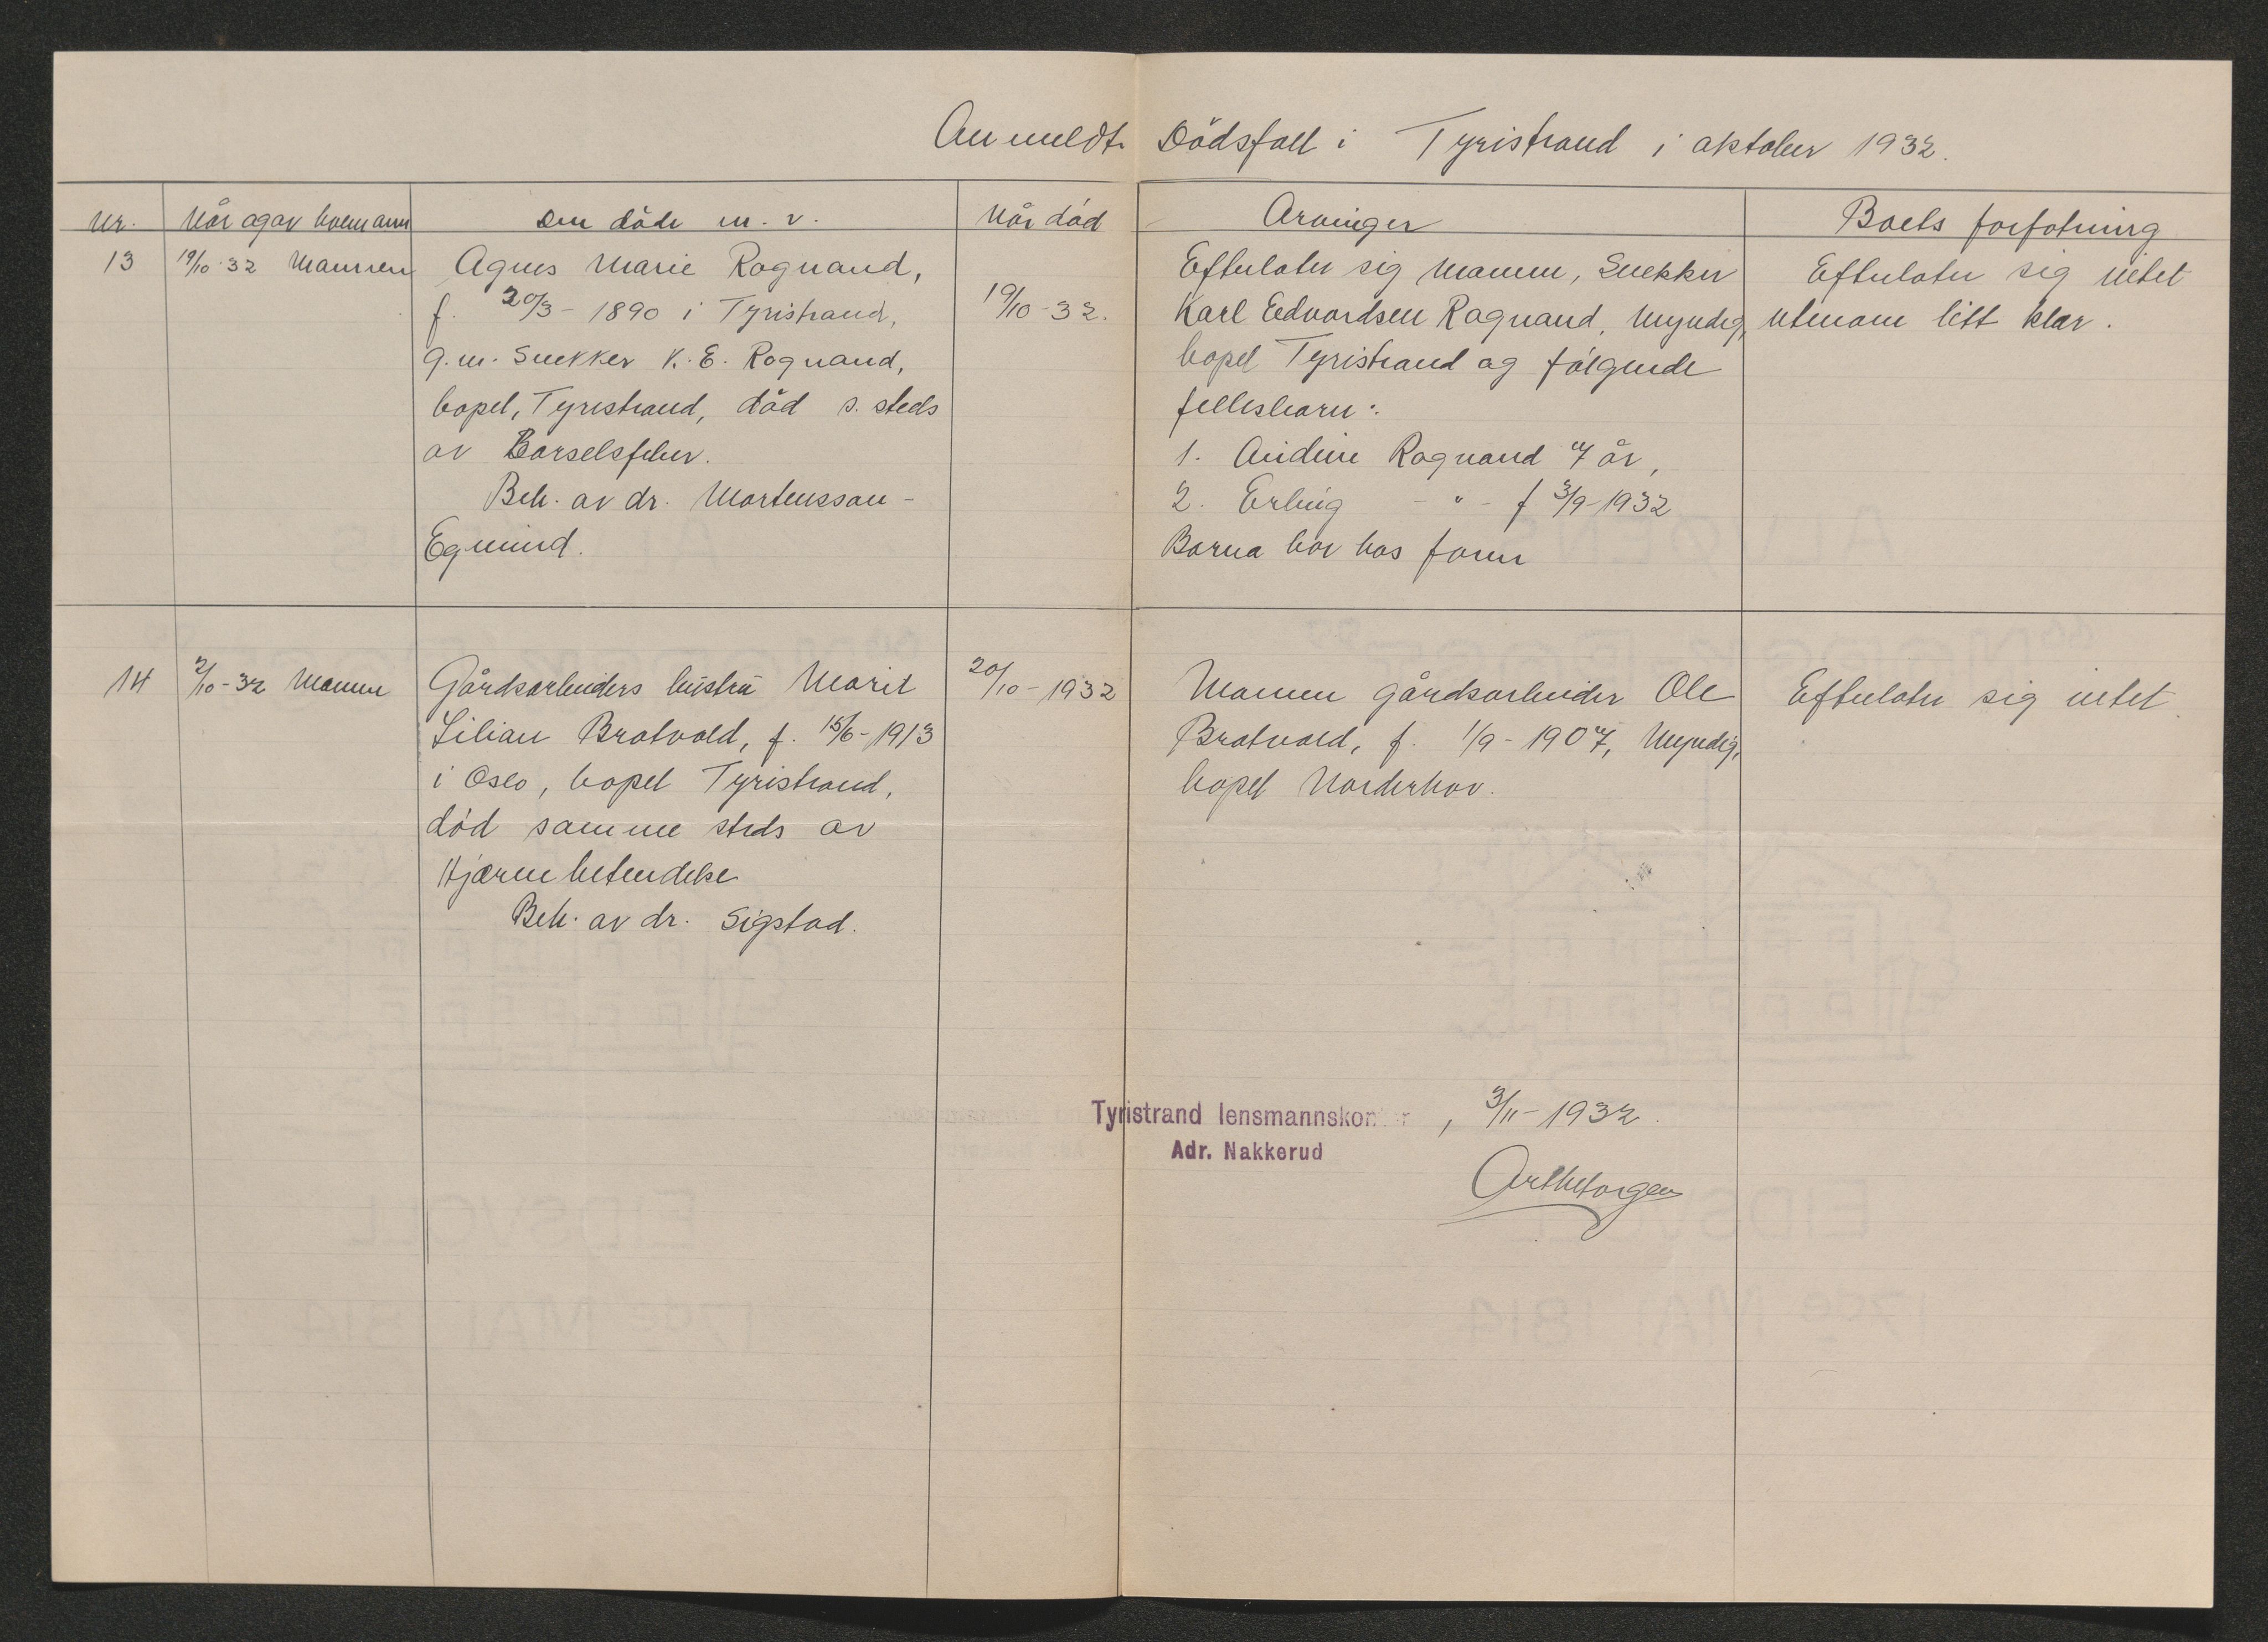 Anmeldte Dödsfall i Tyristrand i oktober 1932.
Nr. Når og av hvemann Den döde m. v. Når död Arvinger Boets forfatning
13 19/10-32 Mannen
Agnes Marie Rognand,
f. 20/3-1890 i Tyristrand,
g.m. Snekker K. E. Rognand,
bopel, Tyristrand, död s. steds
av Barselsfeber.
Beh. av dr. Mortensson-
Egnund.
19/10-32.
Efterlater sig mannen, Snekker
Karl Edvardsen Rognand, Myndig,
bopel Tyristrand og fölgende
fellesbarn:
1. Aidine Rognand 7 år,
2. Erling - " - f 3/9-1932
Barna bor hos faren
Efterlater sig intet
utenom litt klær.
14 2/10-32 Mannen
Gårdsarbeiders hustru Marit
Lilian Bratvold, f. 15/6-1913
i Oslo, bopel Tyristrand,
död samme steds av
Hjærnebetendelse
Beh. av dr. Sigstad.
20/10-1932
Mannen gårdsarbeider Ole
Bratvold, f. 1/9-1907, Myndig,
bopel Norderhov.
Efterlater sig intet.
Tyristrand lensmannskontor, 3/11-1932.
Adr. Nakkerud